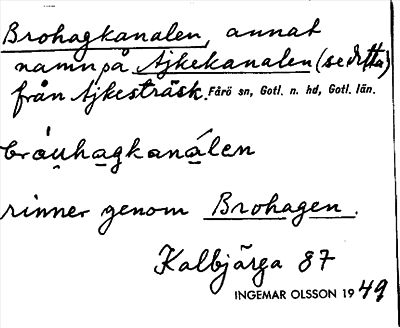 Brohagkanalen, annat
namn på Ajkekanalen (se detta)
från Ajkesträsk. Fårö sn, Gotl. n. hd, Gotl. län.
bråu̯hagkanálen
rinner genom Brohagen.
Kalbjärga 87
INGEMAR OLSSON 1949